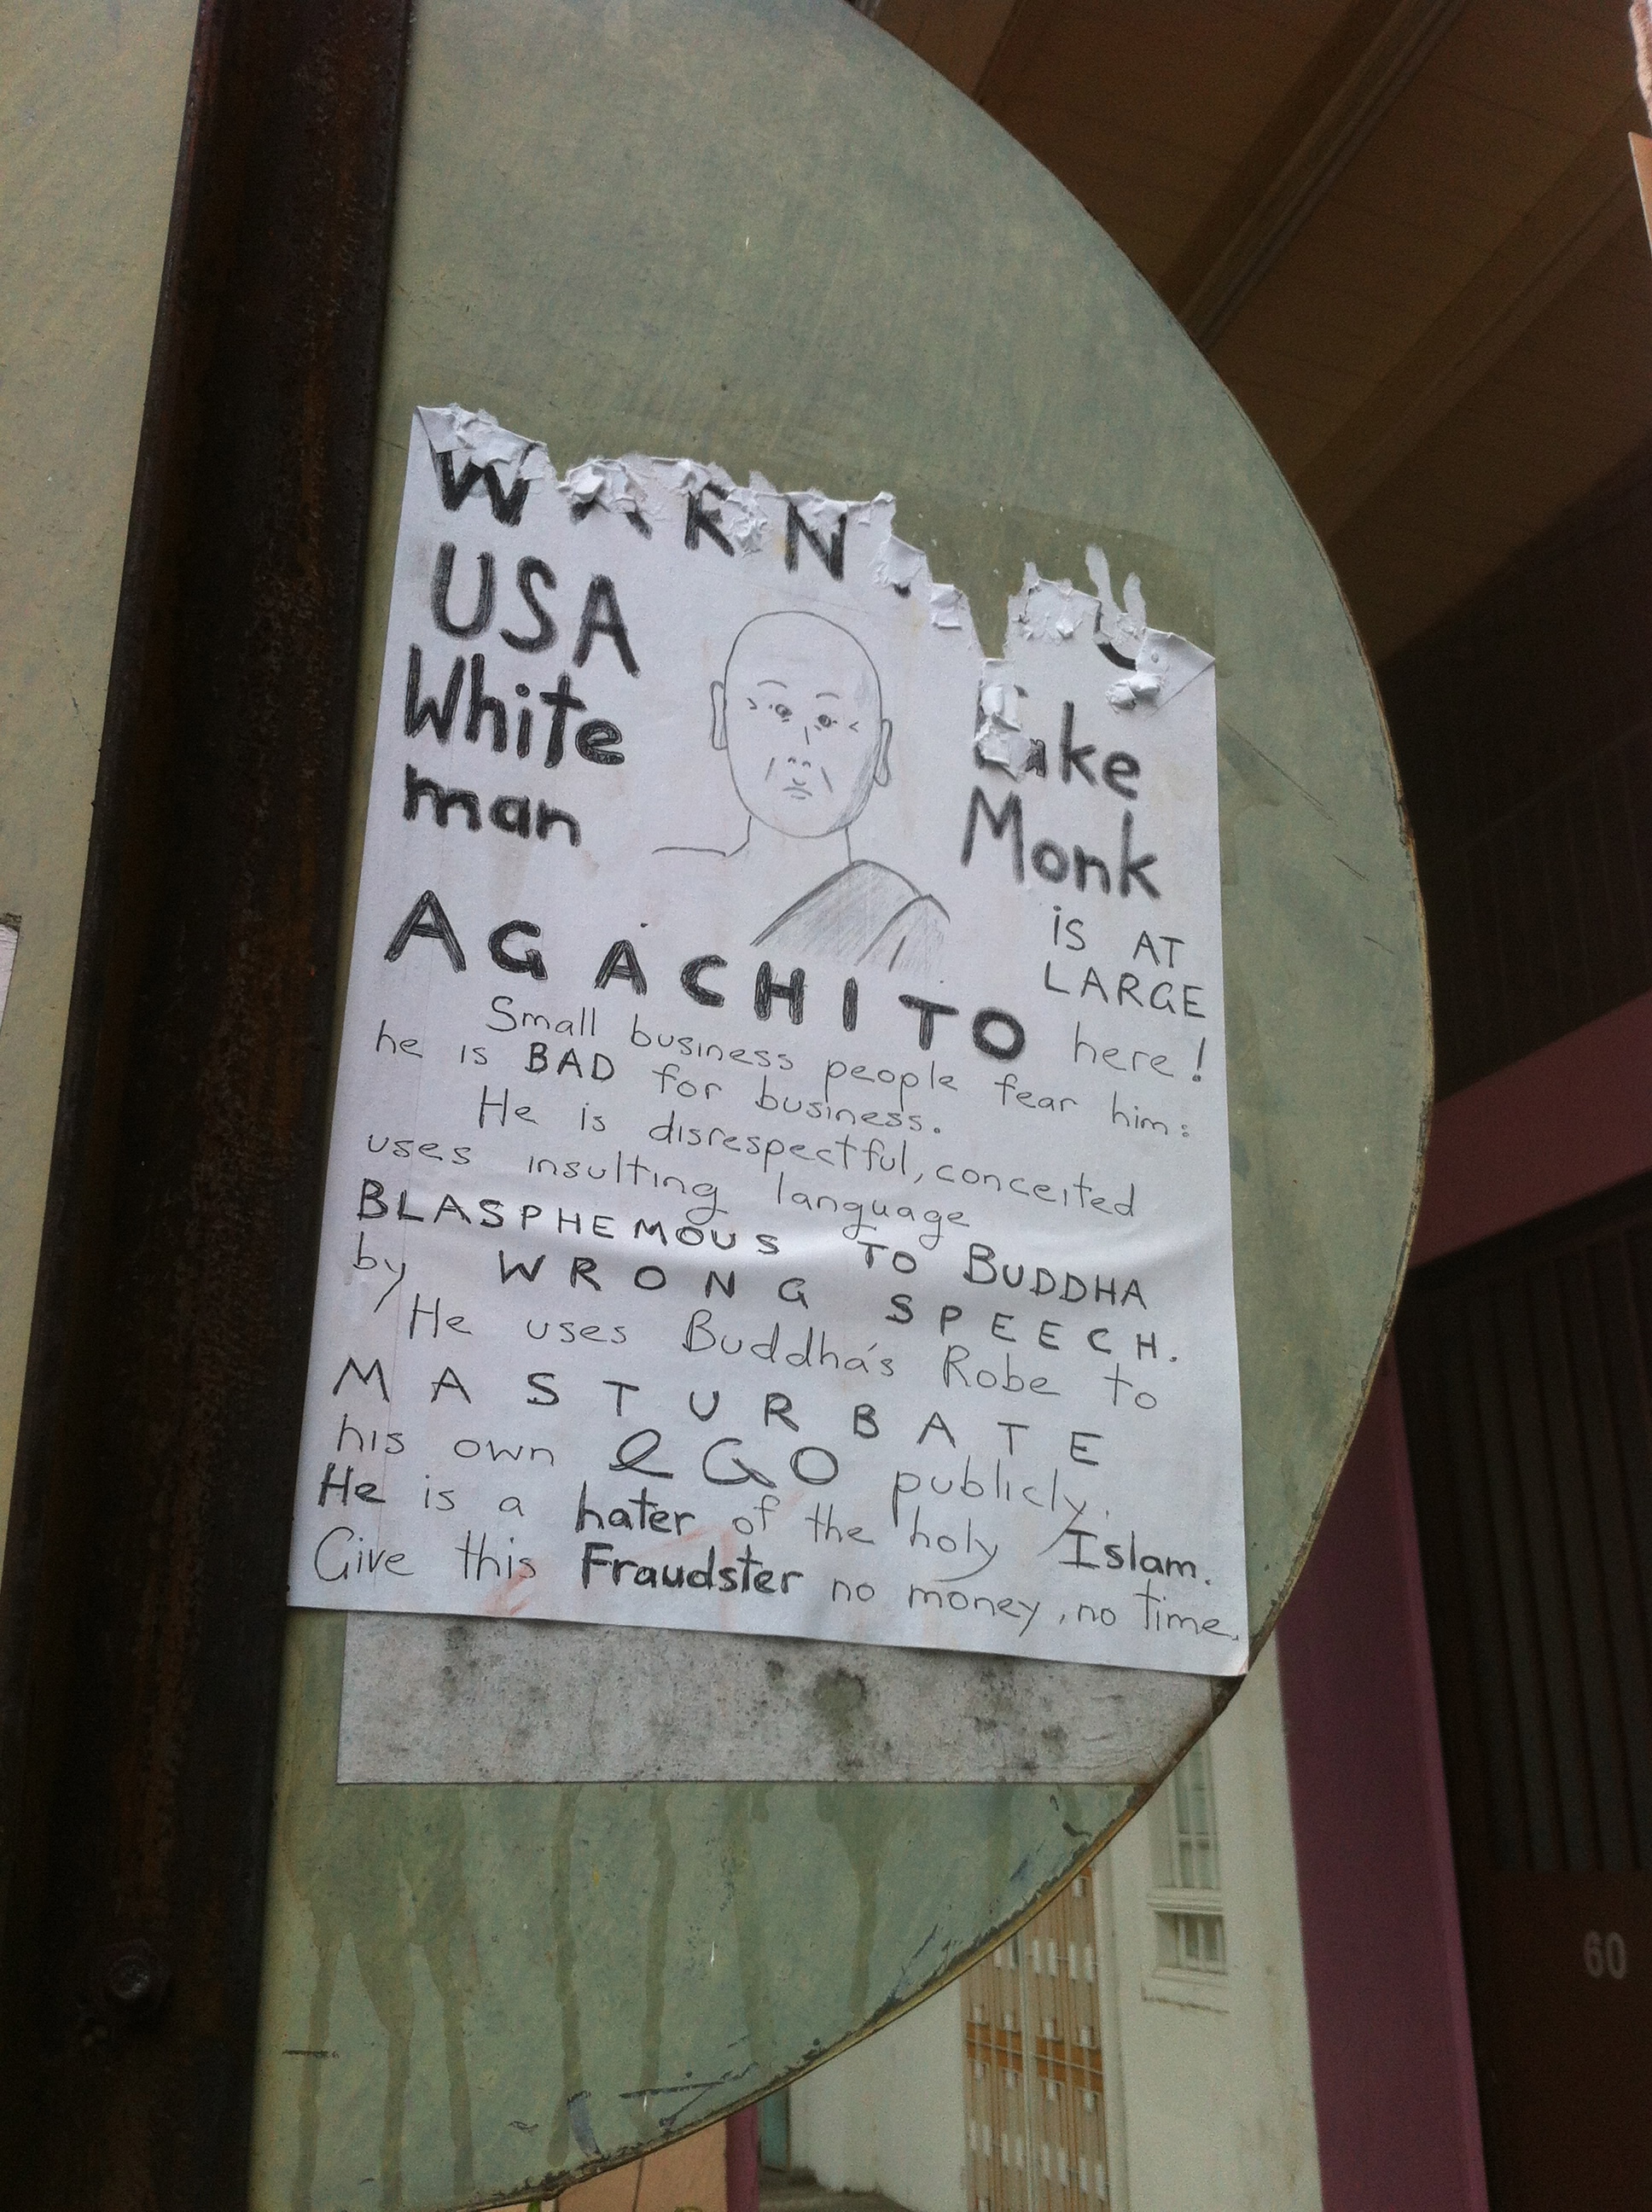 WARN
USA
White
man
Fake
Monk
is AT
LARGE
here!
AGACHITO
Small business people fear him:
he is BAD for business.
He is disrespectful, conceited
uses insulting language
BLASPHEMOUS TO BUDDHA
by WRONG SPEECH.
He uses Buddha's Robe to
MASTURBATE
his own eGO publicly.
He is a hater of the holy Islam.
Give this Fraudster no money, no time.
60